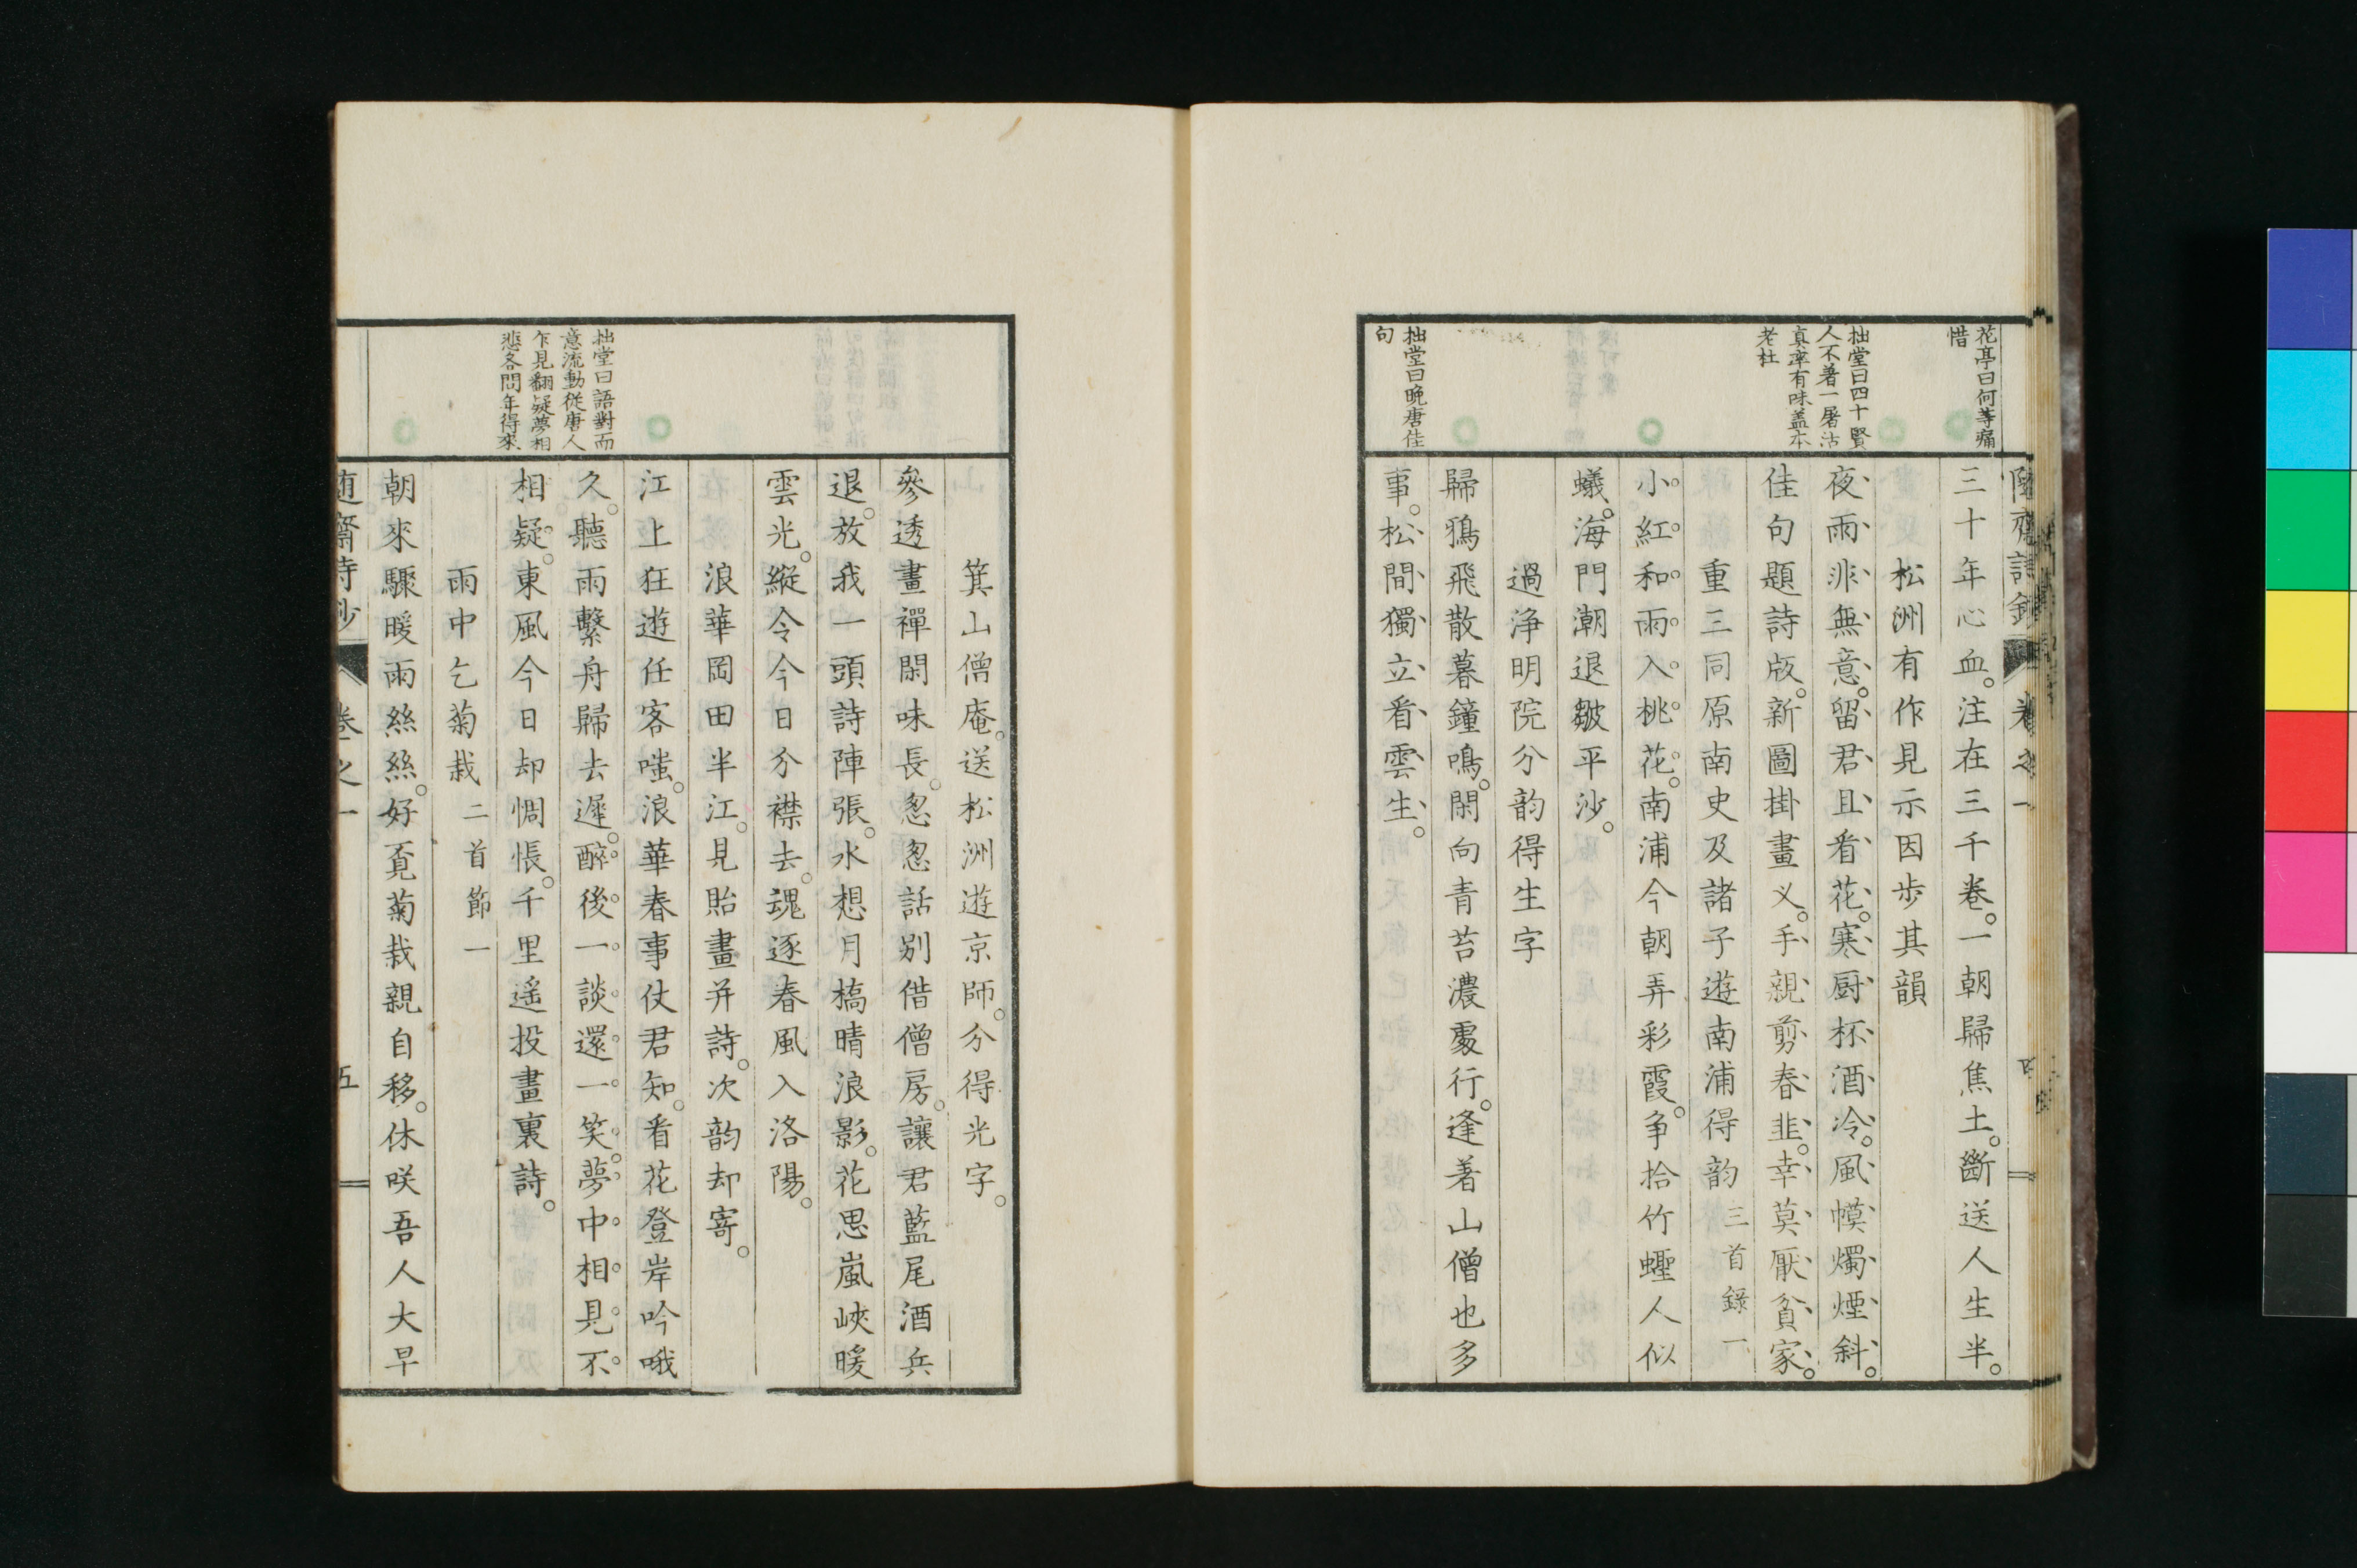 花亭曰何等痛
惜
拙堂曰四十賢
人不著一屠沽
真率有味盖本
老杜
拙堂曰晩唐佳
句
三十年心血。注在三千卷。一朝歸焦土。斷送人生半。
松洲有作見示因步其韻
夜雨非無意。留君且看花。寒厨杯酒冷。風幙燭煙斜。
佳句題詩版。新圖掛畫义。手親剪春韭。幸莫厭貧家。
重三同原南史及諸子遊南浦得韵 三首錄一
小紅和雨入桃花。南浦今朝弄彩霞。争拾竹蟶人似
蟻。海門潮退皺平沙。
過浄明院分韵得生字
歸鴉飛散暮鐘鳴。閑向青苔濃處行。逢著山僧也多
事。松間獨立看雲生。
拙堂曰語對而
意流動從唐人
乍見翻疑夢相
悲各問年得來
箕山僧庵。送松洲遊京師。分得光字。
參透畫禪閑味長。怱怱話別借僧房。讓君藍尾酒兵
退。放我一頭詩陣張。水想月橋晴浪影。花思嵐峽暖
雲光。縱令今日分襟去。魂逐春風入洛陽。
浪華岡田半江。見貽畫并詩。次韵却寄。
江上狂遊任客嗤。浪華春事仗君知。看花登岸吟哦
久。聽雨繫舟歸去遲。醉後一談還一笑。夢中相見不
相疑。東風今日却惆悵。千里遥投畫裏詩。
雨中乞菊栽 二首節一
朝來驟暖雨絲絲。好覔菊栽親自移。休咲吾人大早
随齋詩鈔 卷之一 五